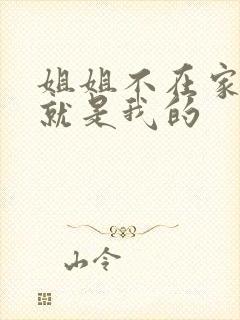 姐姐不在家
就是我的
山令